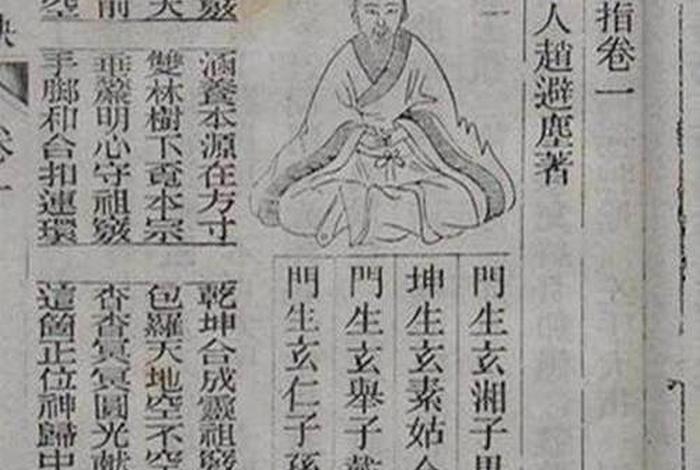 指卷一
人趙避塵著
門生玄湘子
坤生玄素姑
門生玄舉子
門生玄仁子孫
竅
天
前
空
涵養本源在方寸
雙林樹下覔本宗
垂簾明心守祖竅
手脚和合扣連環
乾坤合成靈祖竅
包羅天地空不空
杳杳冥冥圓光献
這箇正位神歸中
訣
卷一